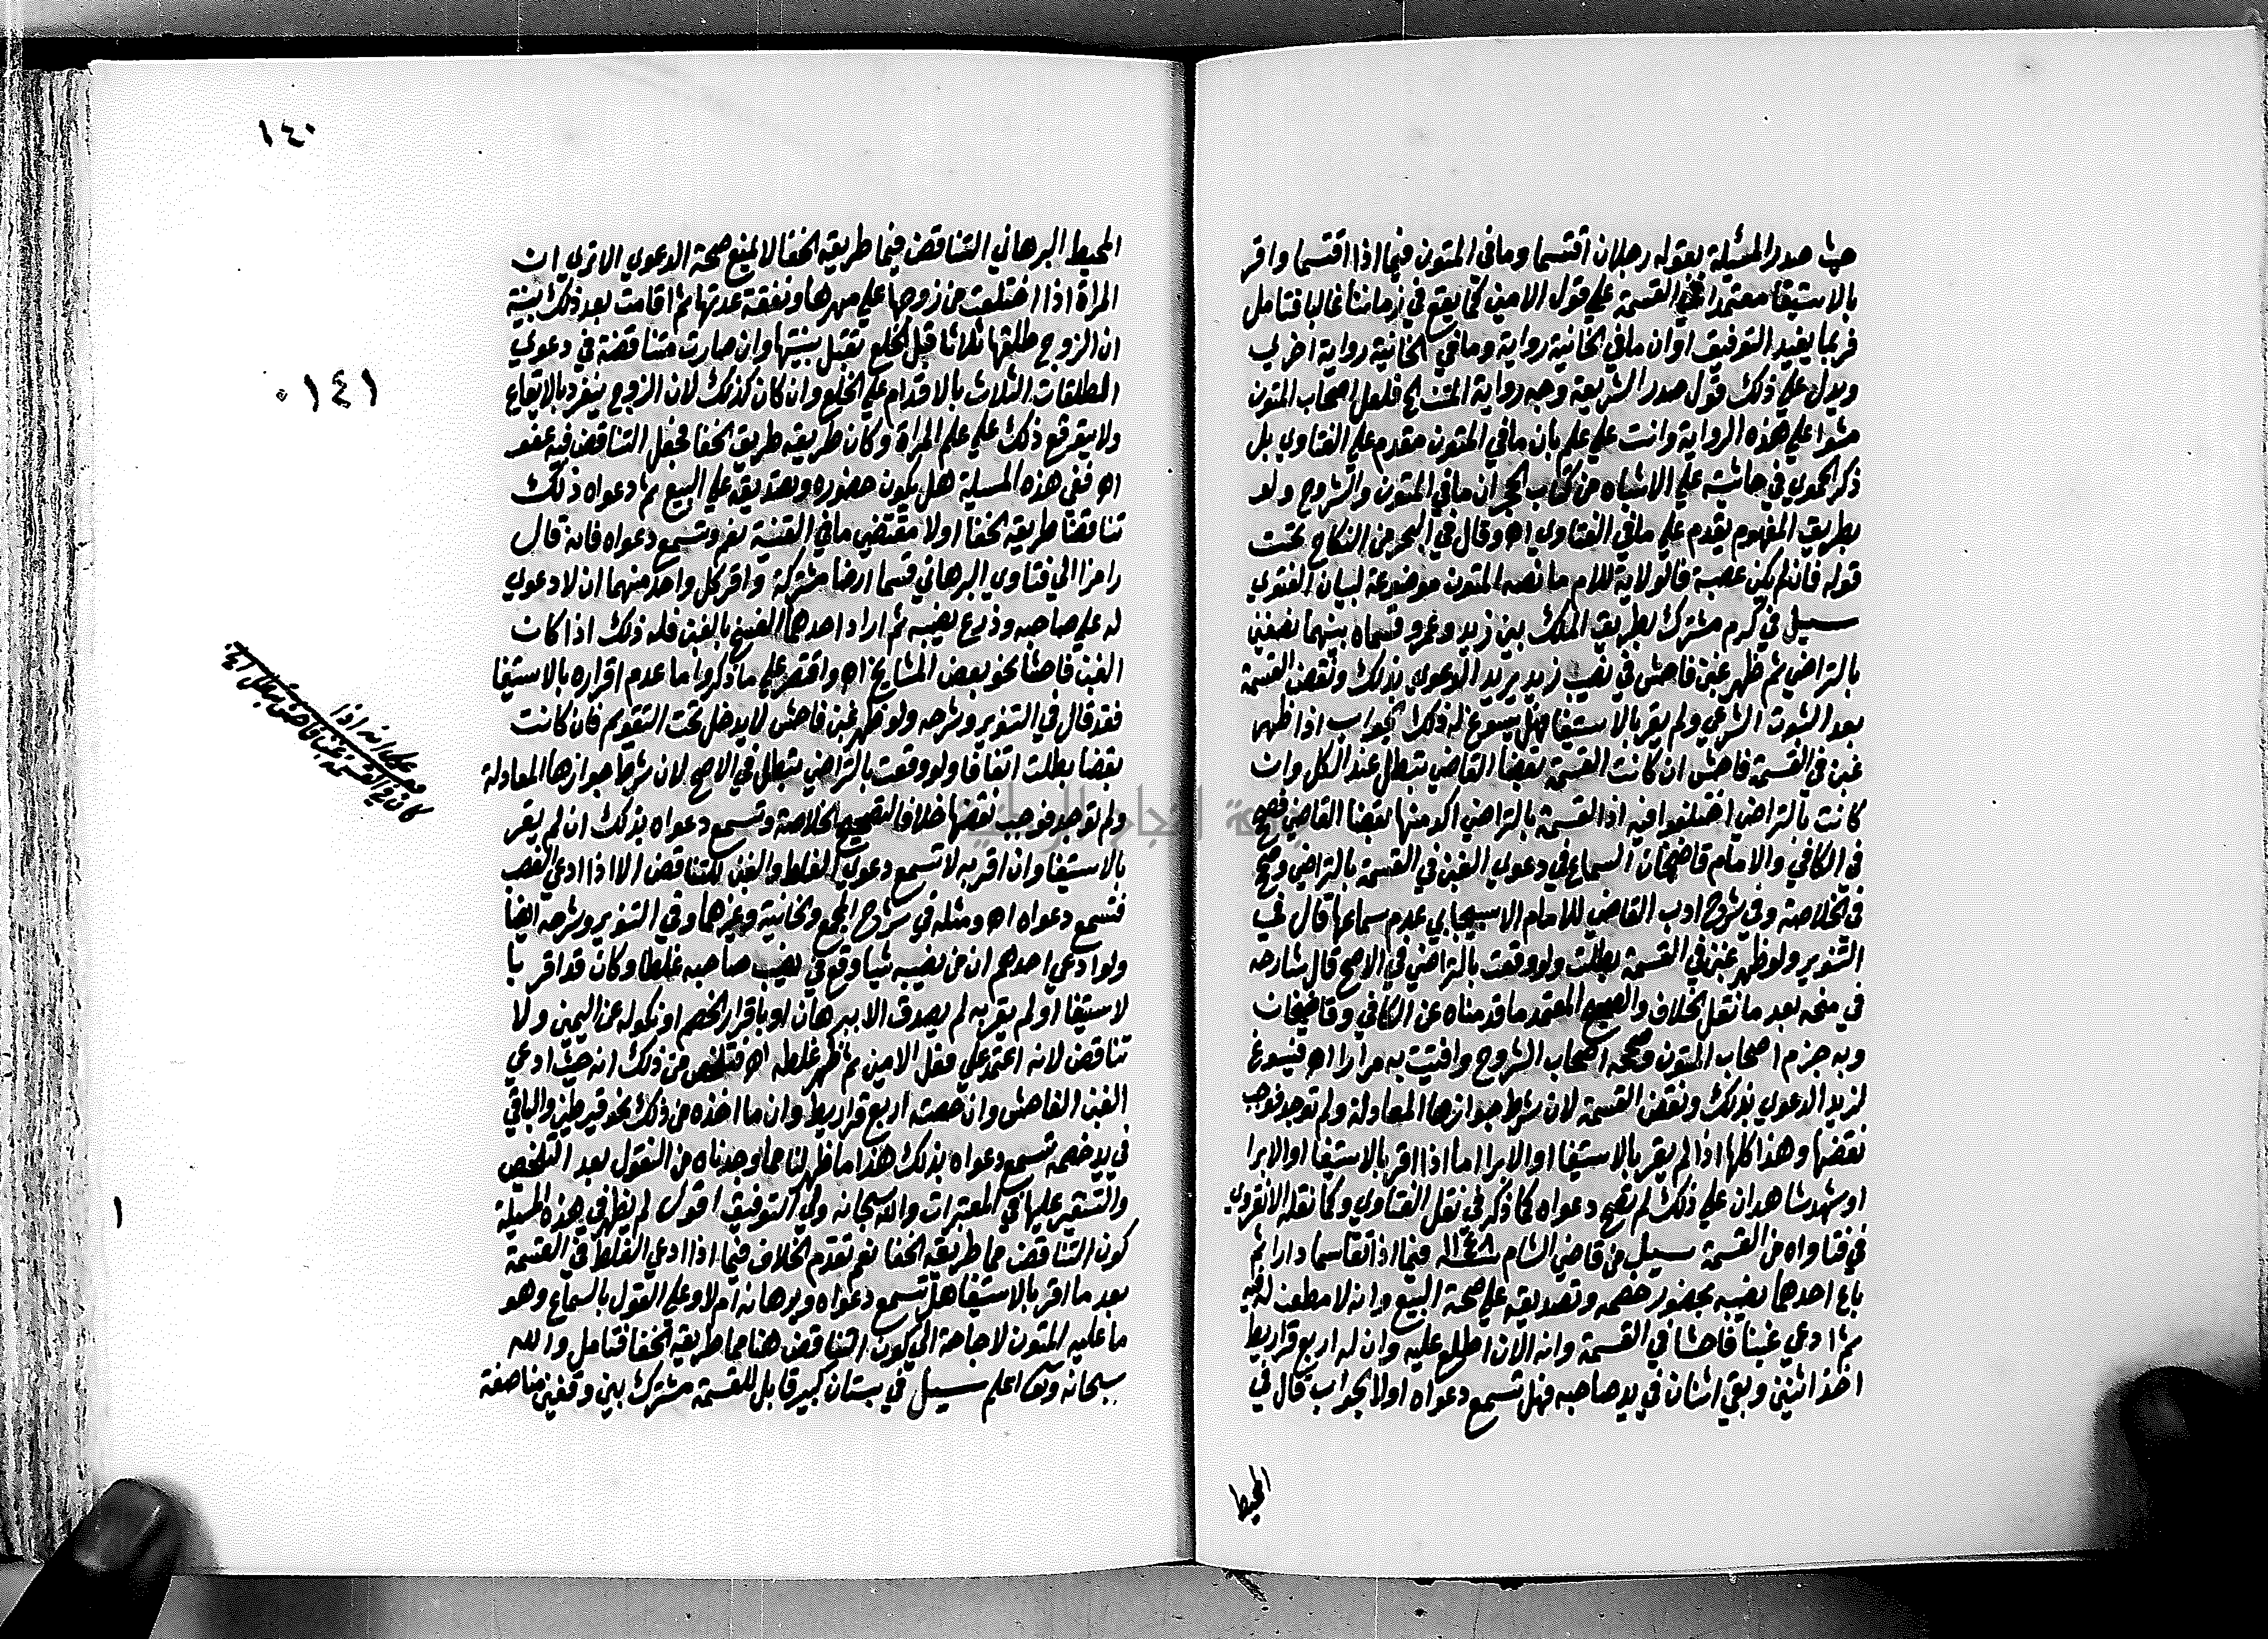 حيث صدر المسئلة بقوله رجلان اقتسما وما في المتون فيما اذا اقتسما واقر
بالاستيفا معتمدا في القسمة علي قول الامين كما يقع في زماننا غالبا فتامل
فربما يفيد التوفيق او ان ما في الخانية رواية وما في الخانية رواية اخري
ويدل علي ذلك قول صدر الشريعة وجه رواية المتن الخ فلعل اصحاب المتون
مشوا علي هذه الرواية وانت علي علم بان ما في المتون مقدم علي الفتاوي بل
ذكر الحموي في حاشيته علي الاشباه من كتاب الحجر ان ما في المتون والشروح ولو
بطريق المفهوم يقدم علي ما في الفتاوي اه وقال في البحر من النكاح تحت
قوله فان لم يكن عصبة فالولاية للام ما نصه المتون موضوعة لبيان الفتوي
سيل في كرم مشترك بطريق الملك بين زيد وعمرو قسماه بينهما نصفين
بالتراضي ثم ظهر غبن فاحش في نصيب زيد يريد الدعوي بذلك ونقض القسمة
بعد الثبوت الشرعي ولم يقر بالاستيفا فهل يسوغ له ذلك الجواب اذا ظهر
غبن في القسمة فاحش ان كانت القسمة بقضا القاضي تبطل عند الكل وان
كانت بالتراضي اختلفوا فيه اذ القسمة بالتراضي اكد منها بقضا القاضي فصحح
في الكافي والامام قاضيخان السماع في دعوي الغبن في القسمة بالتراضي وصحح
في الخلاصة وفي شرح ادب القاضي للامام الاسبيجابي عدم سماعها قال في
التنوير ولو ظهر غبن في القسمة بطلت ولو وقعت بالتراضي في الاصح قال شارحه
في منحه بعد ما نقل الخلاف والصحيح المعتمد ما قدمناه عن الكافي وقاضيخان
وبه جزم اصحاب المتون وصححه اصحاب الشروح وافتيت به مرارا اه فيسوغ
لزيد الدعوي بذلك ونقض القسمة لان شرط جوازها المعادلة ولم توجد فوجب
نقضها وهذا كلها اذا لم يقر بالاستيفا او الابرا اما اذا اقر بالاستيفا او الابرا
او شهد شاهدان علي ذلك لم تصح دعواه كما ذكر في نقل الفتاوي وكما نقله الانقروي
في فتاواه من القسمة سيل من قاضي الشام سنة ١١٤٨ فيما اذا تقاسما دارا ثم
باع احدهما نصيبه بحضور خصمه وتصديقه علي صحة البيع وانه لا مطعن له فيه
ثم ادعي غبنا فاحشا في القسمة وانه الان اطلع عليه وان له اربع قراريط
اخذ اثنين وبقي اثنان في يد صاحبه فهل تسمع دعواه اولا الجواب قال في
المحيط
١٤٠
المحيط البرهاني التناقض فيما طريقه الخفا لا يمنع صحة الدعوي الا تري ان
المراة اذا اختلعت من زوجها علي مهرها ونفقة عدتها ثم اقامت بعد ذلك بينة
ان الزوج طلقها ثلاثا قبل الخلع تقبل بينتها وان صارت متناقضة في دعوي
١٤١
الطلقات الثلاث بالاقدام علي الخلع وان كان كذلك لان الزوج ينفرد بالايقاع
ولا يتوقع ذلك علي علم المراة وكان طريقه طريق الخفا فجعل التناقض فيه عفو
اه ففي هذه المسيلة هل يكون حضوره وتصديقه علي البيع ثم دعواه ذلك
تناقضا طريقه الخفا اولا مقتضي ما في القنية نعم وتسمع دعواه فانه قال
رامزا الي فتاوي البرهاني قسما ارضا مشتركة واقر كل واحد منهما ان لا دعوي
له علي صاحبه وذرع نصيبه ثم اراد احدهما الفسخ بالغبن فله ذلك اذا كان
الغبن فاحشا نحو بعض المشايخ اه واقتصر علي ما ذكروا ما عدم اقراره بالاستيفا
فقد قال في التنوير وشرحه ولو ظهر غبن فاحش لا يدخل تحت التقويم فان كانت
بقضا بطلت اتفاقا ولو وقعت بالتراضي تبطل في الاصح لان شرط جوازها المعادلة
ولم توجد فوجب نقضها خلافا لتصحيح الخلاصة وتسمع دعواه بذلك ان لم يقر
بالاستيفا وان اقر به لا تسمع دعوي الغلط والغبن للتناقض الا اذا ادعي الغصب
فتسمع دعواه اه ومثله في شرح المجمع والخانية وغيرهما وفي التنوير وشرحه ايضا
ولو ادعي احدهم ان من نصيبه شيا وقع في نصيب صاحبه غلطا وكان قد اقر با
لاستيفا او لم يقر به لم يصدق الا ببرهان او باقرار الخصم او نكوله عن اليمين ولا
تناقض لانه اعتمد علي فعل الامين ثم ظهر غلطه اه فتلخص من ذلك انه حيث ادعي
الغبن الفاحش وان حصته اربع قراريط وان ما اخذه من ذلك نحو قيرطين والباقي
في يد خصمه تسمع دعواه بذلك هذا ما ظهر لنا مما وجدناه من النقول بعد التفحص
والتنقير عليها في المعتبرات والله سبحانه ولي التوفيق اقول لم يظهر في هذه المسيلة
كون التناقض مما طريقه الخفا نعم تقدم الخلاف فيما اذا ادعي الغلط في القسمة
بعد ما اقر بالاستيفا هل تسمع دعواه وبرهانه ام لا وعلي القول بالسماع وهو
ما عليه المتون لا حاجة الي كون التناقض هنا مما طريقه الخفا فتامل والله
سبحانه وتعالى اعلم سيل في بستان كبير قابل للقسمة مشترك بين وقفين مناصفة
١